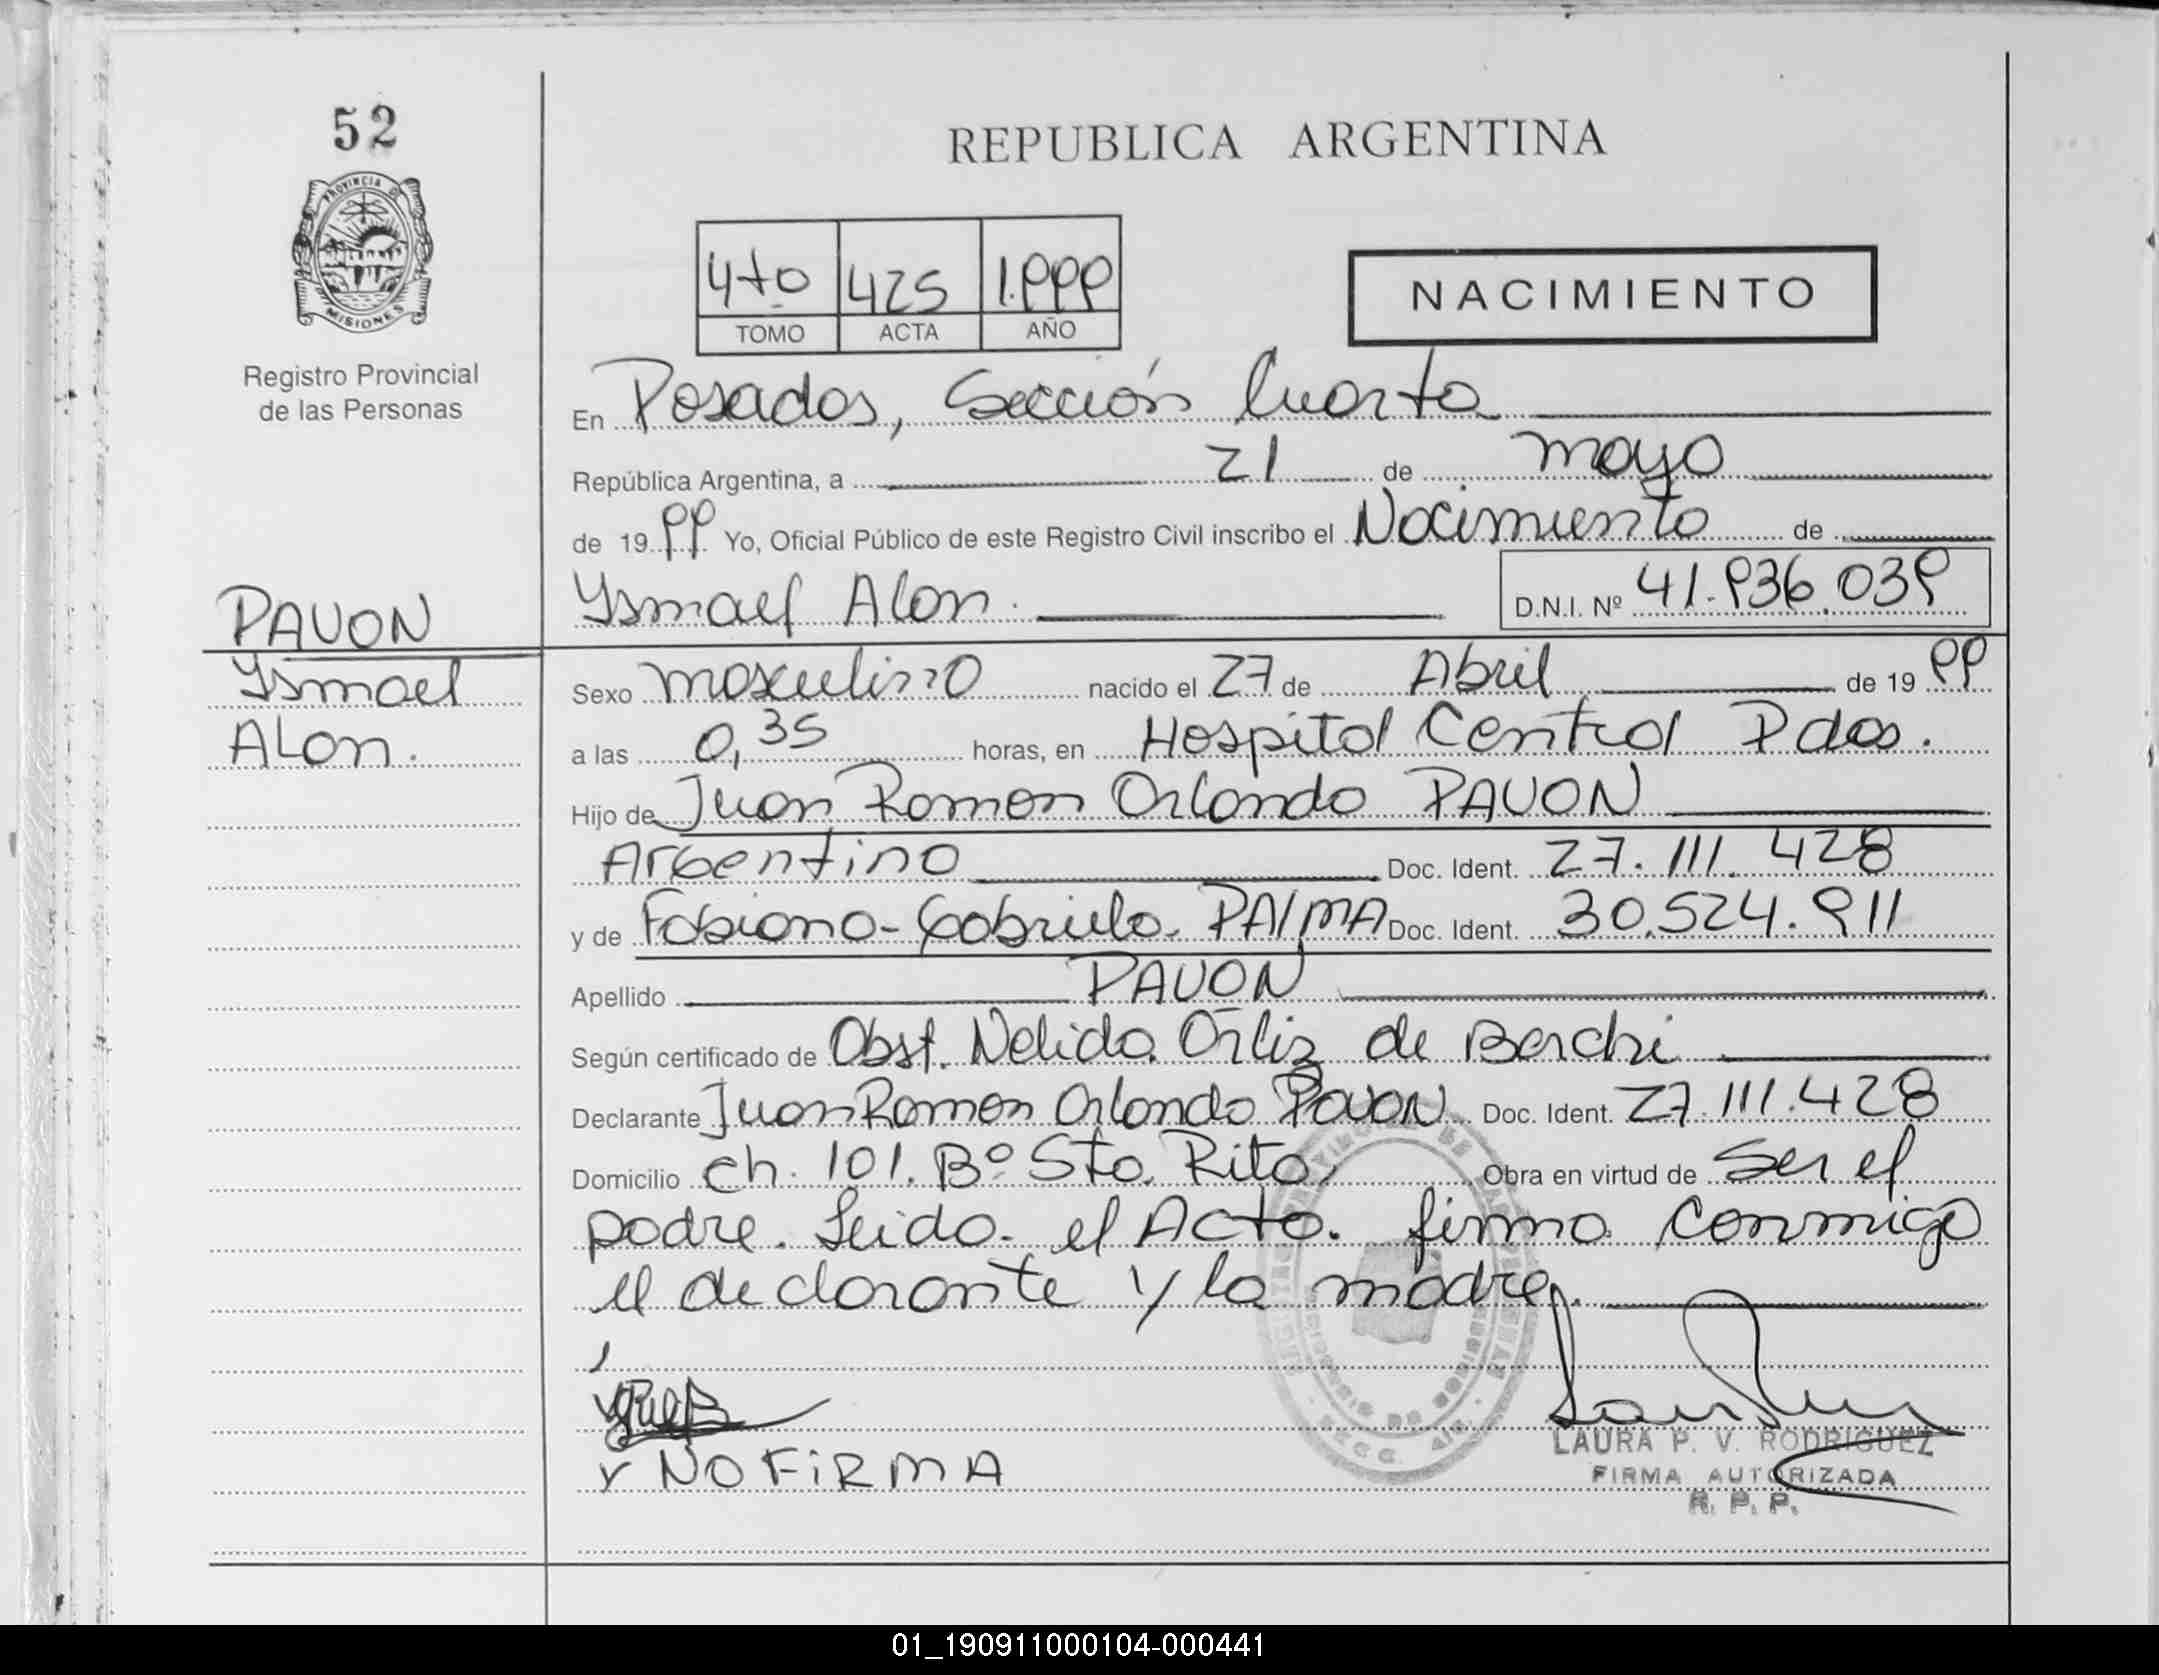 52
PROVINCIA DE
MISIONES
Registro Provincial
de las Personas
REPUBLICA ARGENTINA
4to 425 1.999
TOMO ACTA AÑO
NACIMIENTO
En Posadas, Sección Cuarta
República Argentina, a 21 de mayo
de 1999 Yo, Oficial Público de este Registro Civil inscribo el Nacimiento de
Ysmael Alan. D.N.I. Nº 41.936.039
PAVON
Ysmael
ALan.
Sexo masculino nacido el 27 de Abril de 1999
a las 0,35 horas, en Hospital Central Pdas.
Hijo de Juan Ramon Orlando PAVON
Argentino Doc. Ident. 27.111.428
y de Fabiana-Gabriela PALMA Doc. Ident. 30.524.911
Apellido PAVON
Según certificado de Obst. Nelida Ortiz de Berchi
Declarante Juan Ramon Orlando Pavon Doc. Ident. 27.111.428
Domicilio ch. 101. Bº Sta. Rita, Obra en virtud de Ser el
padre. Leida el Acta. firma conmigo
el declarante y la madre.
NO FiRMA
LAURA P. V. RODRIGUEZ
FIRMA AUTORIZADA
R. P. P.
01_190911000104-000441